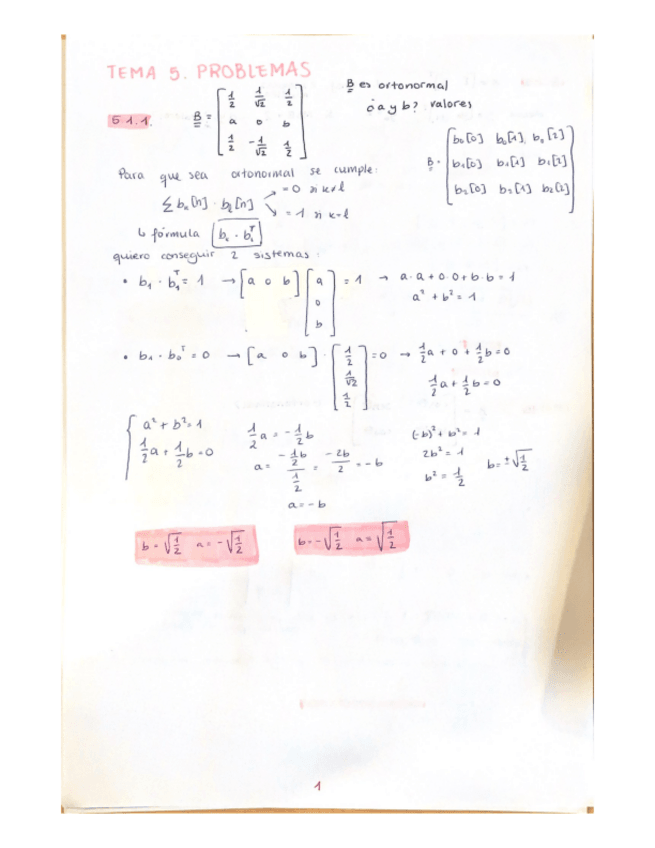 TEMA 5. PROBLEMAS
5.1.1. B = [1/2 1/√2 1/2; a 0 b; 1/2 -1/√2 1/2]
B es ortonormal
¿a y b? valores
B = [b₀[0] b₀[1] b₀[2]; b₁[0] b₁[1] b₁[2]; b₂[0] b₂[1] b₂[2]]
Para que sea ortonormal se cumple:
∑ bₖ[n] · bₗ[n] → =0 si k≠l
→ =1 si k=l
↳ fórmula
quiero conseguir 2 sistemas:
• b₁ · b₁ᵀ = 1 → [a 0 b] [a; 0; b] = 1 → a·a + 0·0 + b·b = 1
a² + b² = 1
• b₁ · b₀ᵀ = 0 → [a 0 b] · [1/2; 1/√2; 1/2] = 0 → 1/2 a + 0 + 1/2 b = 0
1/2 a + 1/2 b = 0
{ a² + b² = 1
1/2 a + 1/2 b = 0
1/2 a = -1/2 b
a = (-1/2 b)/(1/2) = -2b/2 = -b
a = -b
(-b)² + b² = 1
2b² = 1
b² = 1/2
b = ±√1/2
b = √1/2 a = -√1/2
b = -√1/2 a = √1/2
1